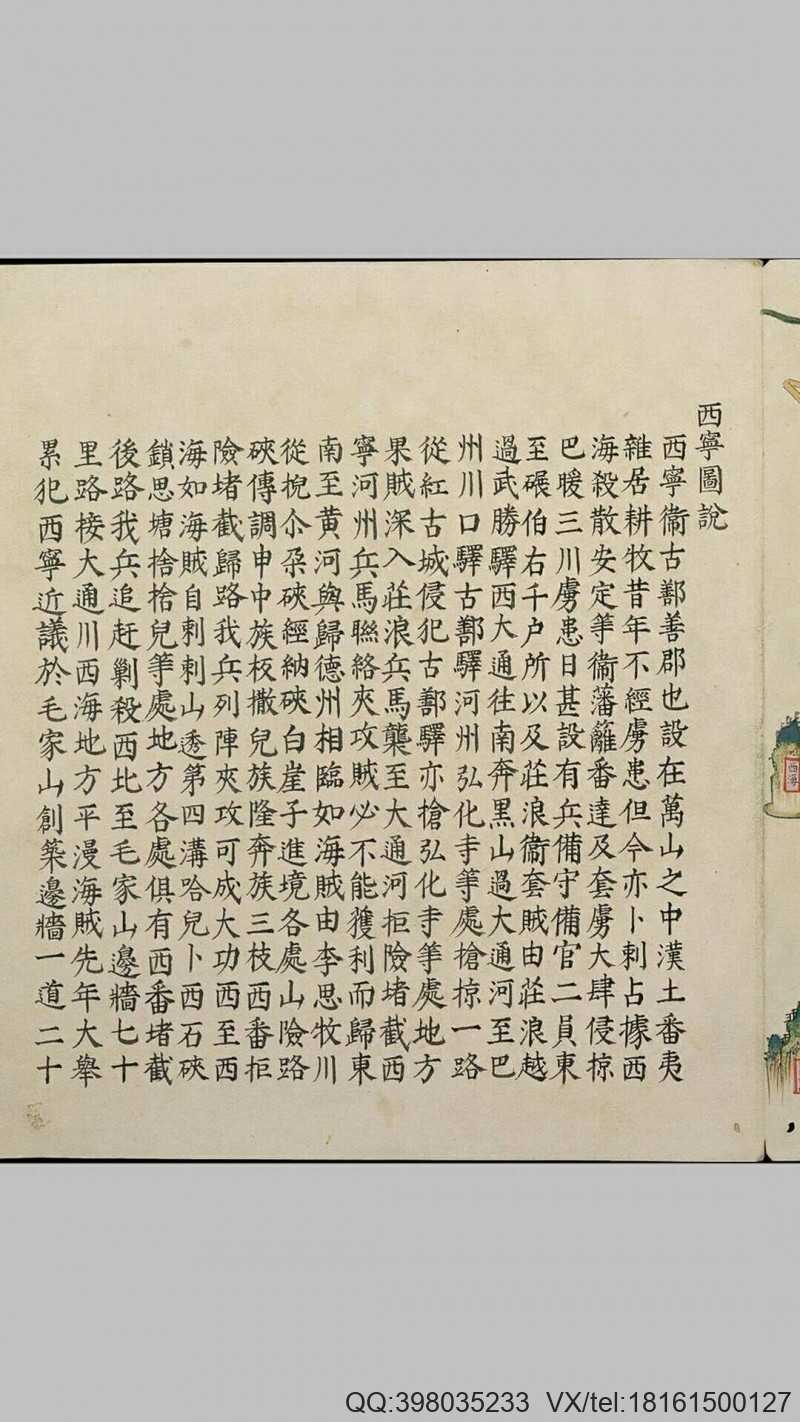 西寧圖說
西寧衞古鄯善郡也設在萬山之中漢土番夷
雜居耕牧昔年不經虜患但今亦卜剌占據西
海殺散安定等衞藩籬番達及套虜大肆侵掠
巴暖三川虜患日甚設有兵備守備官二員東
至碾伯右千户所以及莊浪衞套賊由莊浪越
過武勝驛西大通往南奔黑山過大通河至巴
州川口驛古鄯驛河州弘化寺等處搶掠一路
從紅古城侵犯古鄯驛亦搶弘化寺等處地方
果賊深入莊浪兵馬襲至大通河拒險堵截西
寧河州兵馬聯絡夾攻賊必不能獲利而歸東
南至黄河與歸德州相臨如海賊由李思牧川
從掜尒朶硤經納硤白崖子進境各處山險路
硤傳調申中族板撒兒族隆奔族三枝西番拒
險堵截歸路我兵列陣夾攻可成大功西至西
海如海賊自剌剌山透第四溝哈兒卜西石硤
鎖思塘捨捨兒等處地方各處俱有西番堵截
後路我兵追赶剿殺西北至毛家山邊牆七十
里路接大通川西海地方平漫海賊先年大舉
累犯西寧近議於毛家山創築邊牆一道二十
西海
QQ:398035233 VX/tel:18161500127